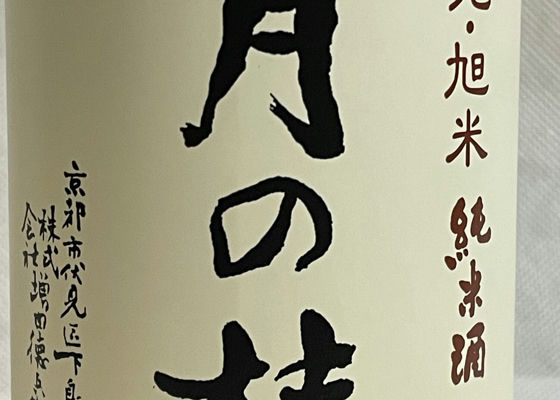 ・旭米 純米酒
月の
京都市伏見区下鳥
株式会社増田徳兵